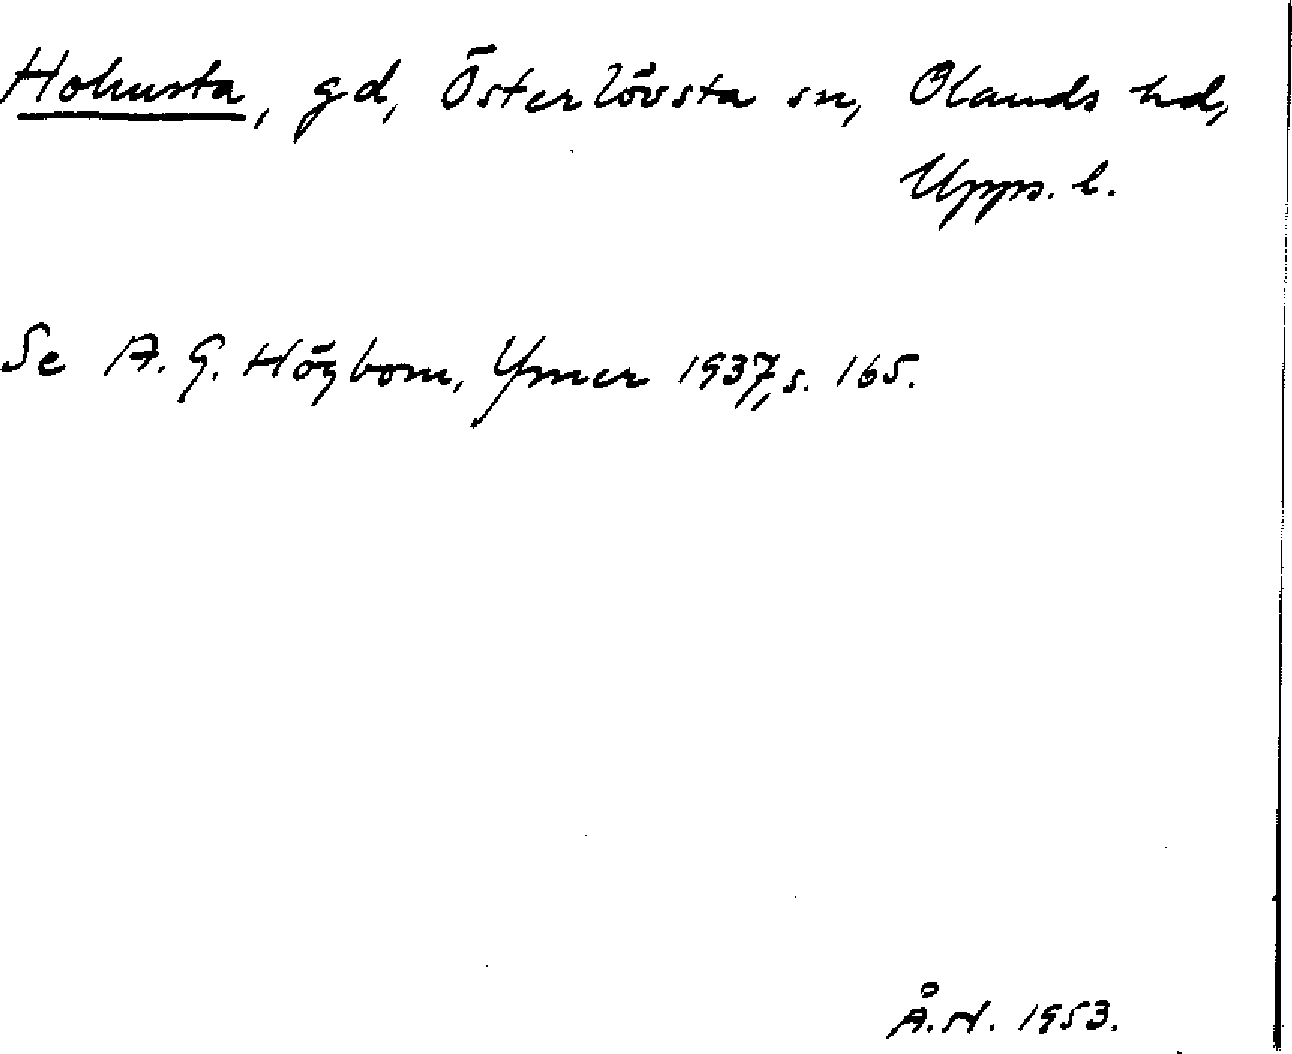 Hokusta, gd, Österlövsta sn, Olands hd,
Upps. l.
Se A. G. Högbom, Ymer 1937, s. 165.
Å.N. 1953.